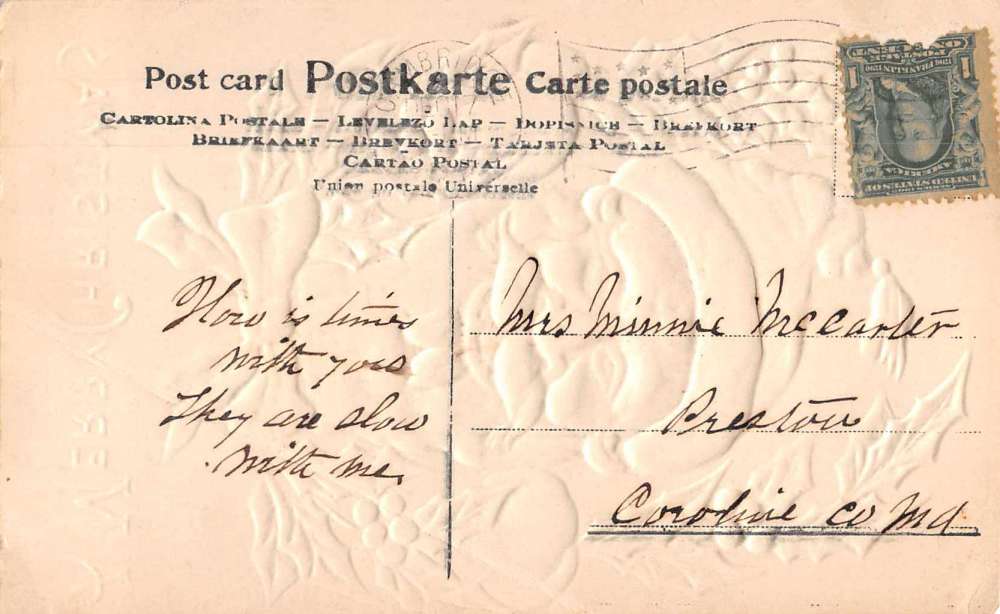 Post card Postkarte Carte postale
CARTOLINA POSTALE — LEVELEZŐ LAP — DOPISNICE — BREFKORT
BRIEFKAART — BREVKORT — TARJETA POSTAL
CARTAO POSTAL
Union postale Universelle
How is times
with you
They are slow
with me.
Mrs Minnie McCarter
Preston
Caroline co Md
1 FRANKLIN 1